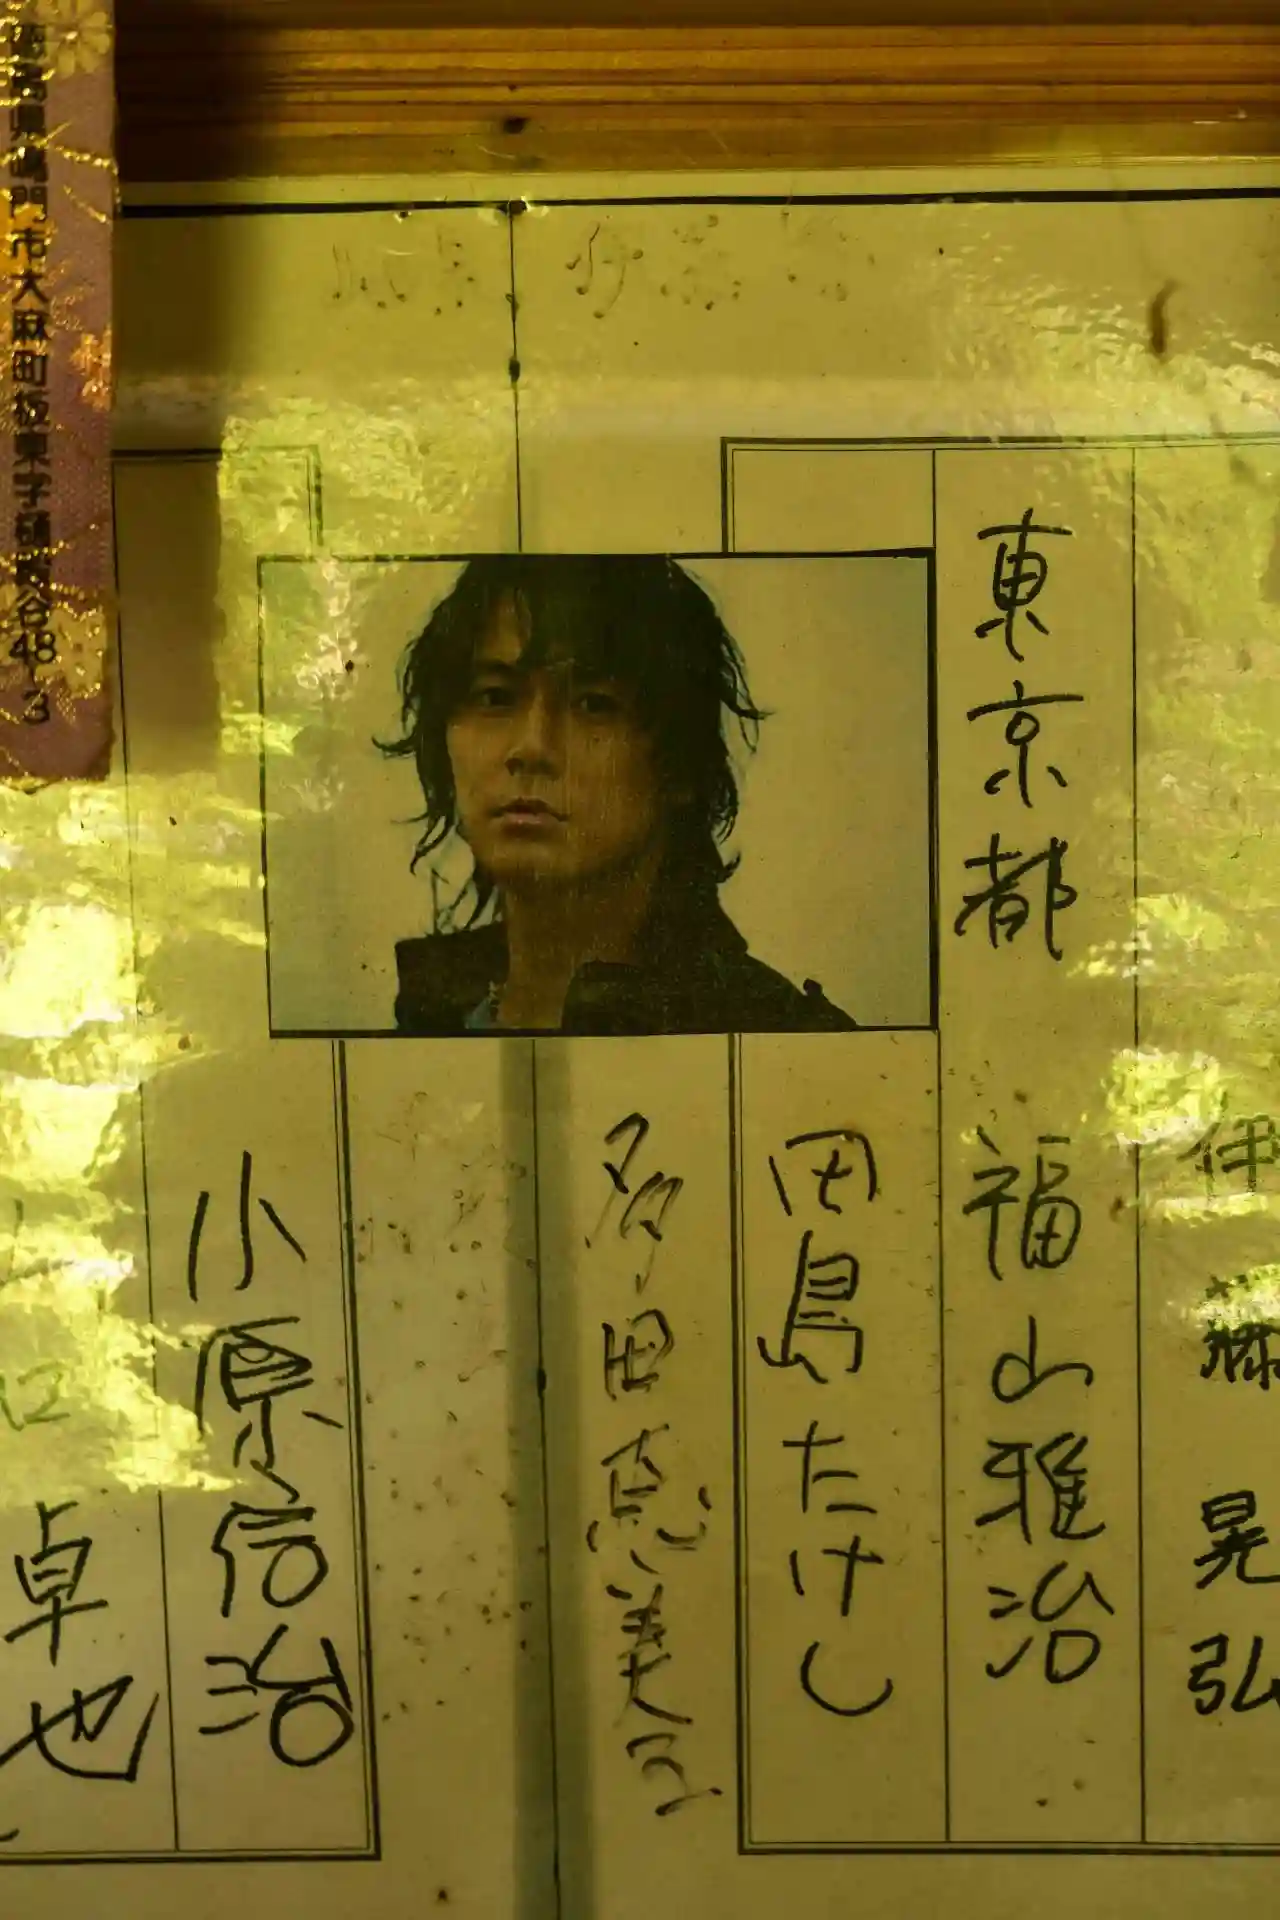 伊藤晃弘
東京都 福山雅治
田島たけし
多田恵美子
小原信治
卓也
徳島県鳴門市大麻町板東字樋殿谷48-3